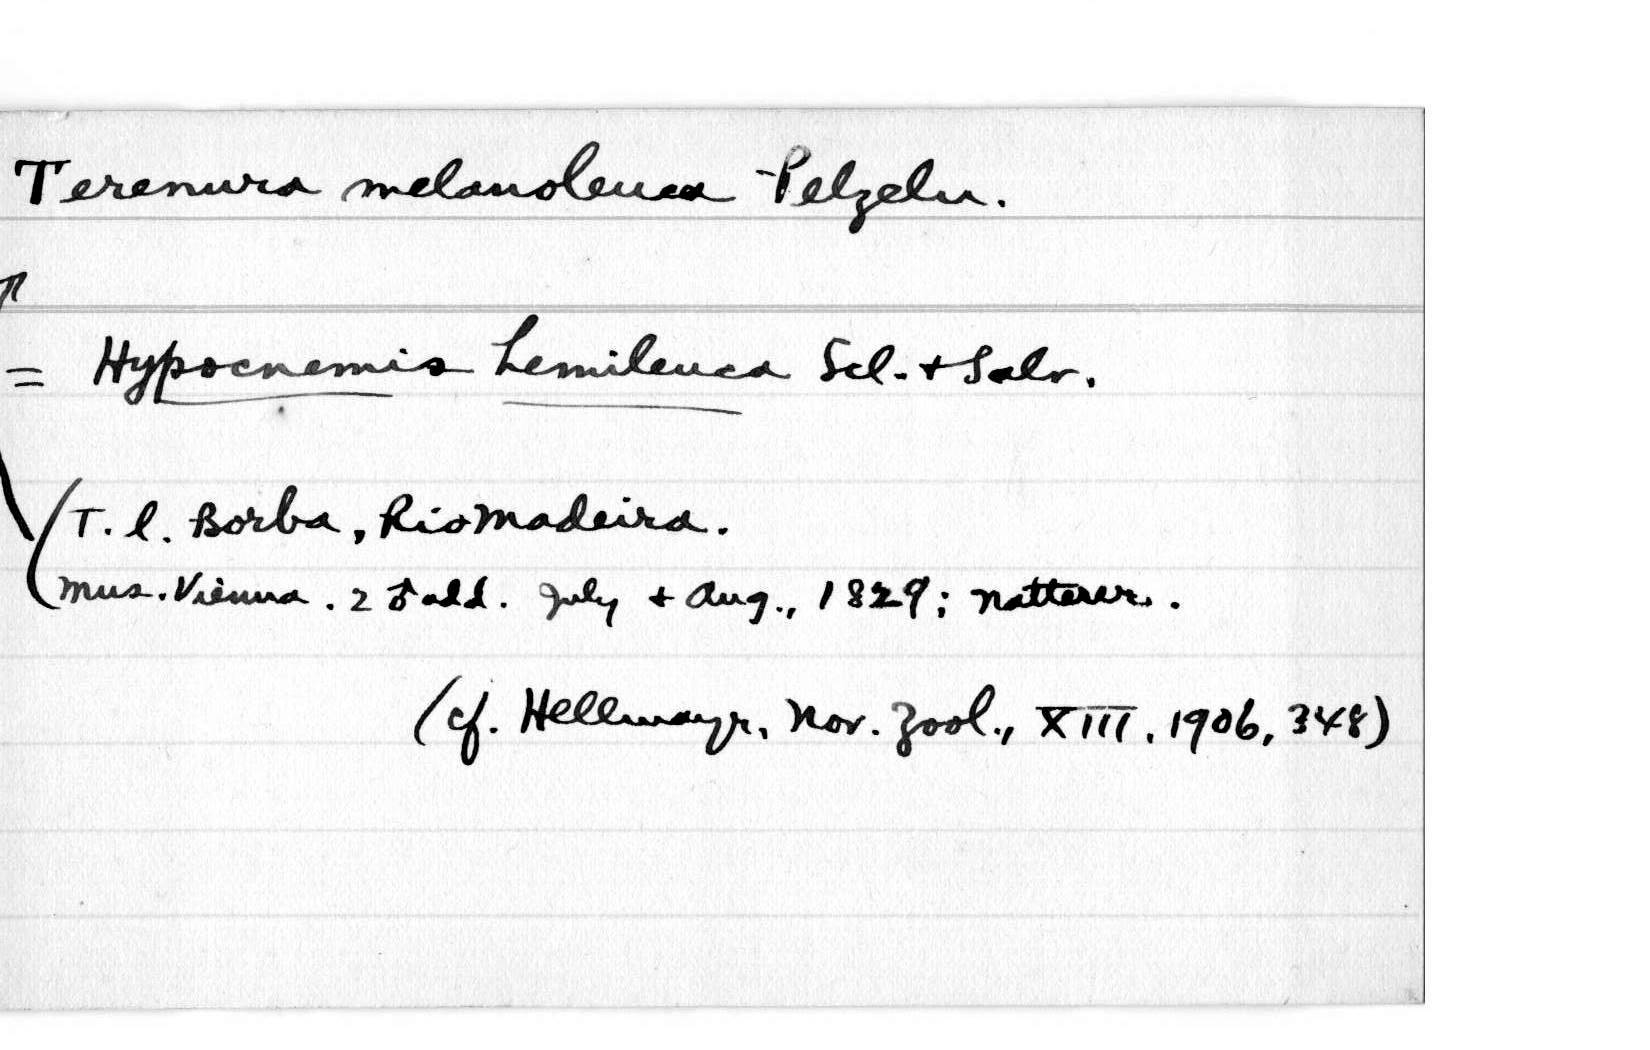 Terenura melanoleuca Pelzeln.
= Hypocnemis hemileuca Scl. + Salv.
(T. l. Borba, Rio Madeira.
Mus. Vienna. 2 ♂ add. July + Aug., 1829; Natterer.
(cf. Hellmayr, Nov. Zool., XIII, 1906, 348)